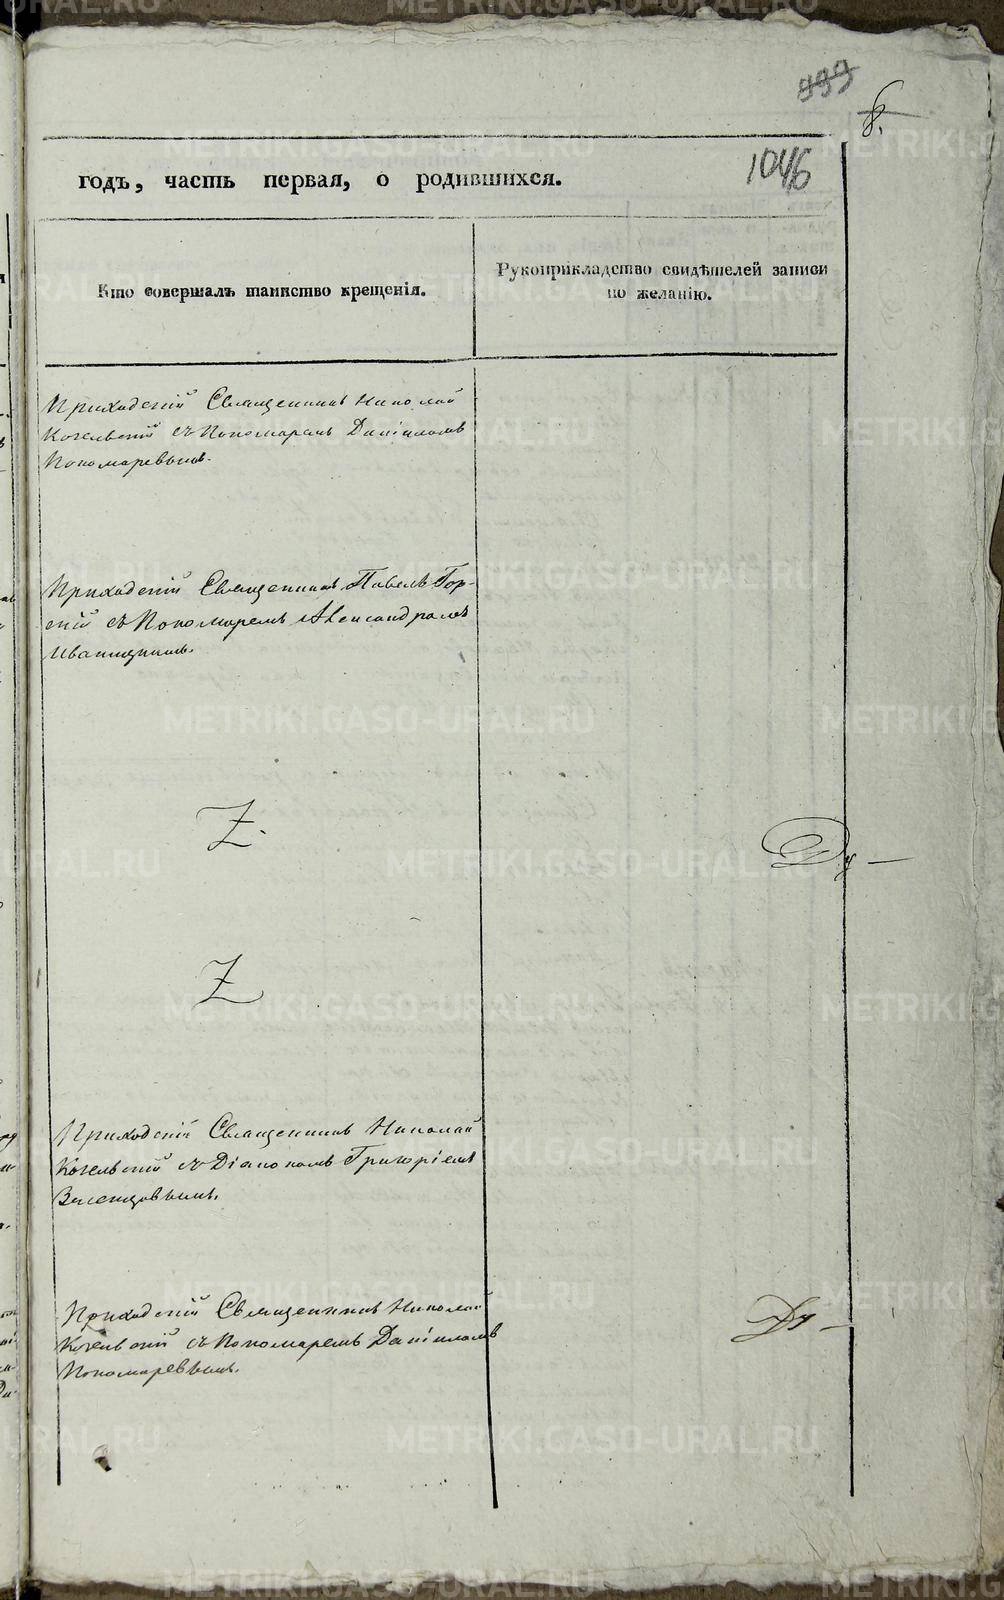 999
8.
1046
годъ, часть первая, о родившихся.
Кто совершалъ таинство крещенія.
Рукоприкладство свидѣтелей записи
по желанію.
Приходскій Священникъ Николай
Кочельскій съ Пономаремъ Даніиломъ
Пономаревымъ.
Приходскій Священникъ Павелъ Гор-
скій съ Пономаремъ Александромъ
Иваницкимъ.
Z.
Z
Приходскій Священникъ Николай
Кочельскій съ Діакономъ Григоріемъ
Приходскій Священникъ Николай
Кочельскій съ Пономаремъ Даніиломъ
Пономаревымъ.
METRIKI.GASO-URAL.RU